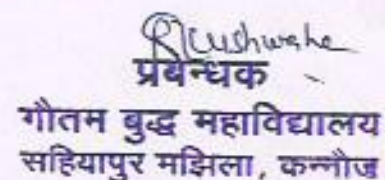 RKushwaha
प्रबन्धक
गौतम बुद्ध महाविद्यालय
सहियापुर मझिला, कन्नौज